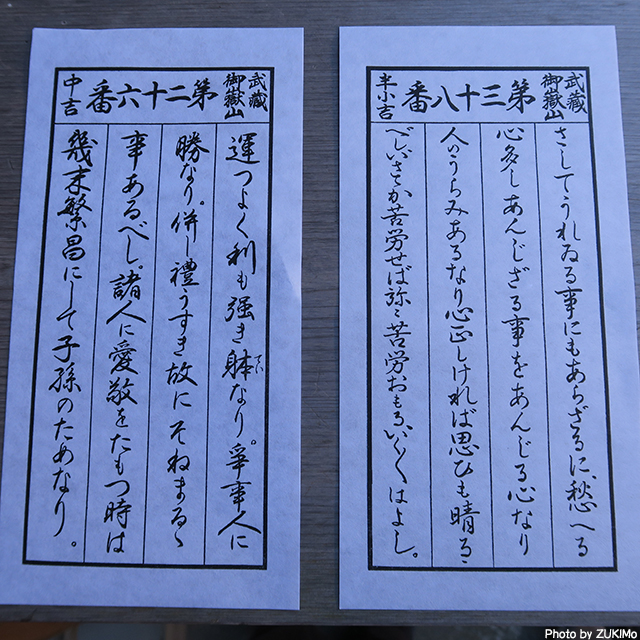 武蔵
御嶽山
第三十八番
半小吉
さしてうれゐる事にもあらざるに、愁へる
心多しあんじざる事をあんじる心なり
人のうらみあるなり心正しければ思ひも晴るゝ
べし、いさゝか苦労せば弥〻苦労おもる、いくはよし。
武蔵
御嶽山
第二十六番
中吉
運つよく利も強き躰なり。爭事人に
てい
勝なり。併し禮うすき故にそねまるゝ
事あるべし。諸人に愛敬をたもつ時は
幾末繁昌にして子孫のためなり。
Photo by ZUKIMo